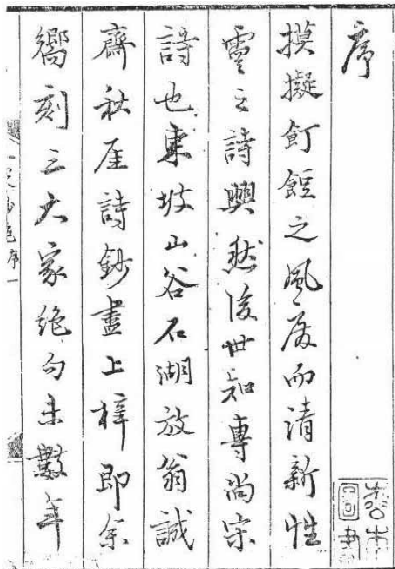 序
摸擬飣餖之風廢而清新性
靈之詩興然後世知專尚宋
詩也東坡山谷石湖放翁誠
齋秋厓詩鈔盡上梓即余
嚮刻三大家絶句未數年